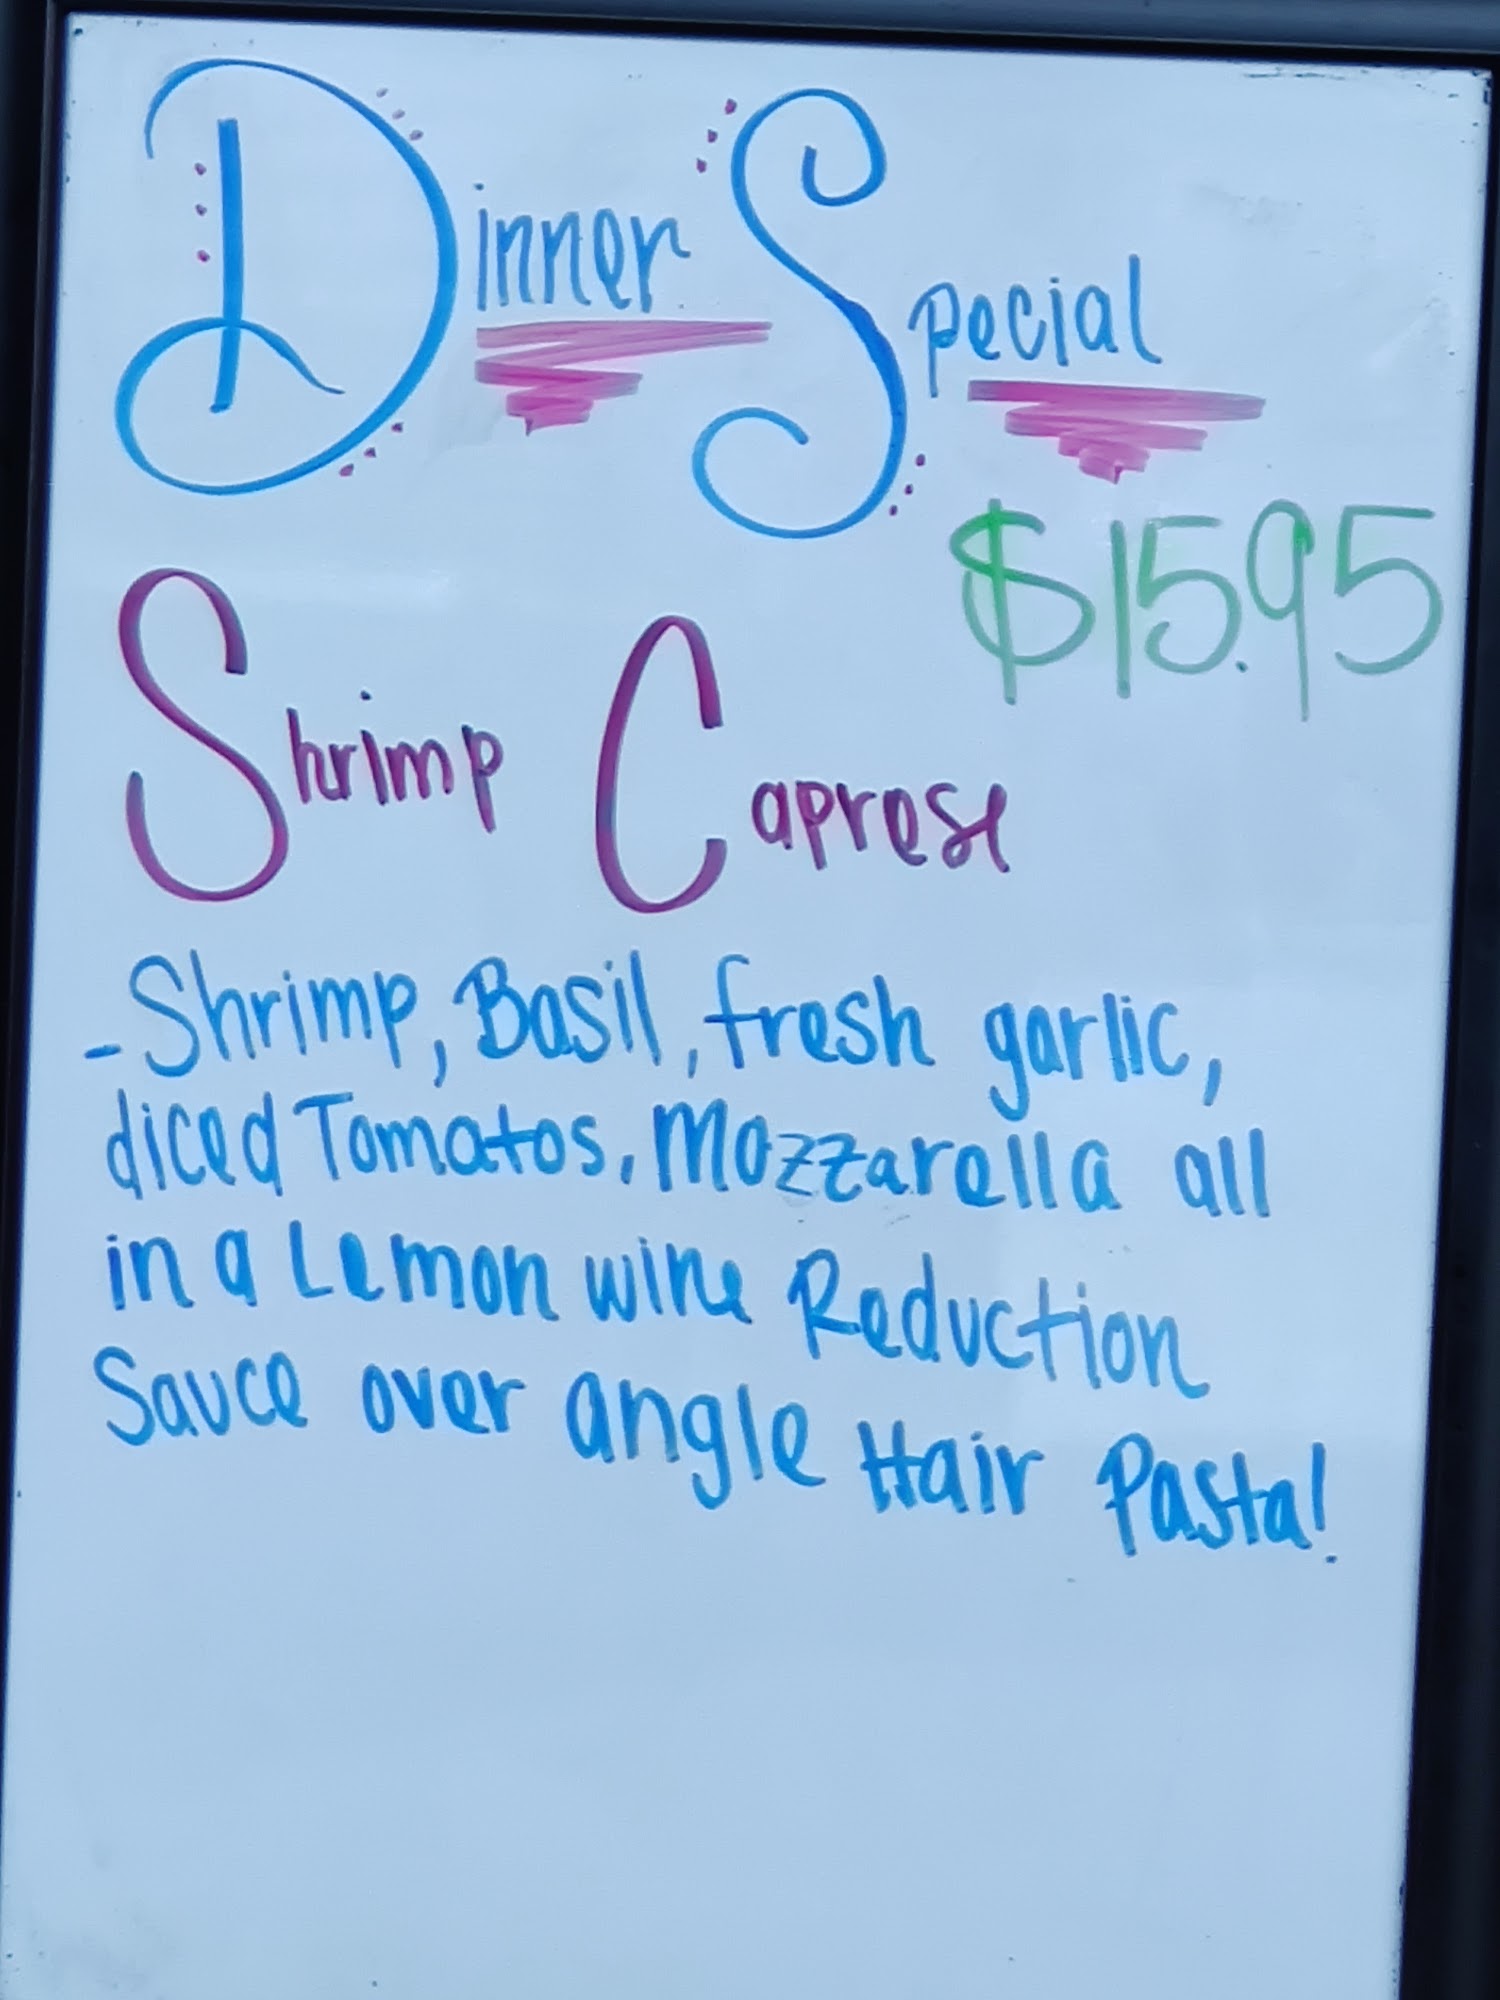 Dinner Special
$15.95
Shrimp Caprese
- Shrimp, Basil, fresh garlic,
diced Tomatos, Mozzarella all
in a Lemon wine Reduction
Sauce over angle Hair Pasta!